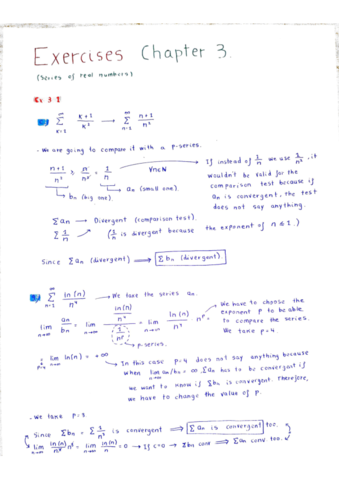 Exercises Chapter 3.
(Series of real numbers)
Ex 3.1
∞ Σ n=1 (k+1)/k² → ∞ Σ n=1 (n+1)/n²
- We are going to compare it with a p-series.
(n+1)/n² ≥ n/n² = 1/n ∀n∈N
bn (big one). an (small one).
If instead of 1/n we use 1/n², it
wouldn't be valid for the
comparison test because if
an is convergent, the test
does not say anything.
Σ an → Divergent (comparison test).
Σ 1/n → (1/n is divergent because the exponent of n ≤ 1.)
Since Σ an (divergent) ⟹ Σ bn (divergent).
∞ Σ n=1 ln(n)/n⁴ → We take the series an.
lim n→∞ an/bn = lim n→∞ (ln(n)/n⁴)/(1/n^p) = lim n→∞ ln(n)/n⁴ n^p
→ p-series.
We have to choose the
exponent p to be able
to compare the series.
We take p=4.
lim ln(n) = +∞
In this case p=4 does not say anything because
when lim n→∞ an/bn = ∞ Σ an has to be convergent if
we want to know if Σ bn is convergent. Therefore,
we have to change the value of p.
- We take p=3
Since Σ bn = Σ 1/n³ is convergent ⟹ Σ an is convergent too.
lim n→∞ ln(n)/n⁴ n³ = lim n→∞ ln(n)/n = 0 → If c=0 → Σ bn conv ⟹ Σ an conv too.